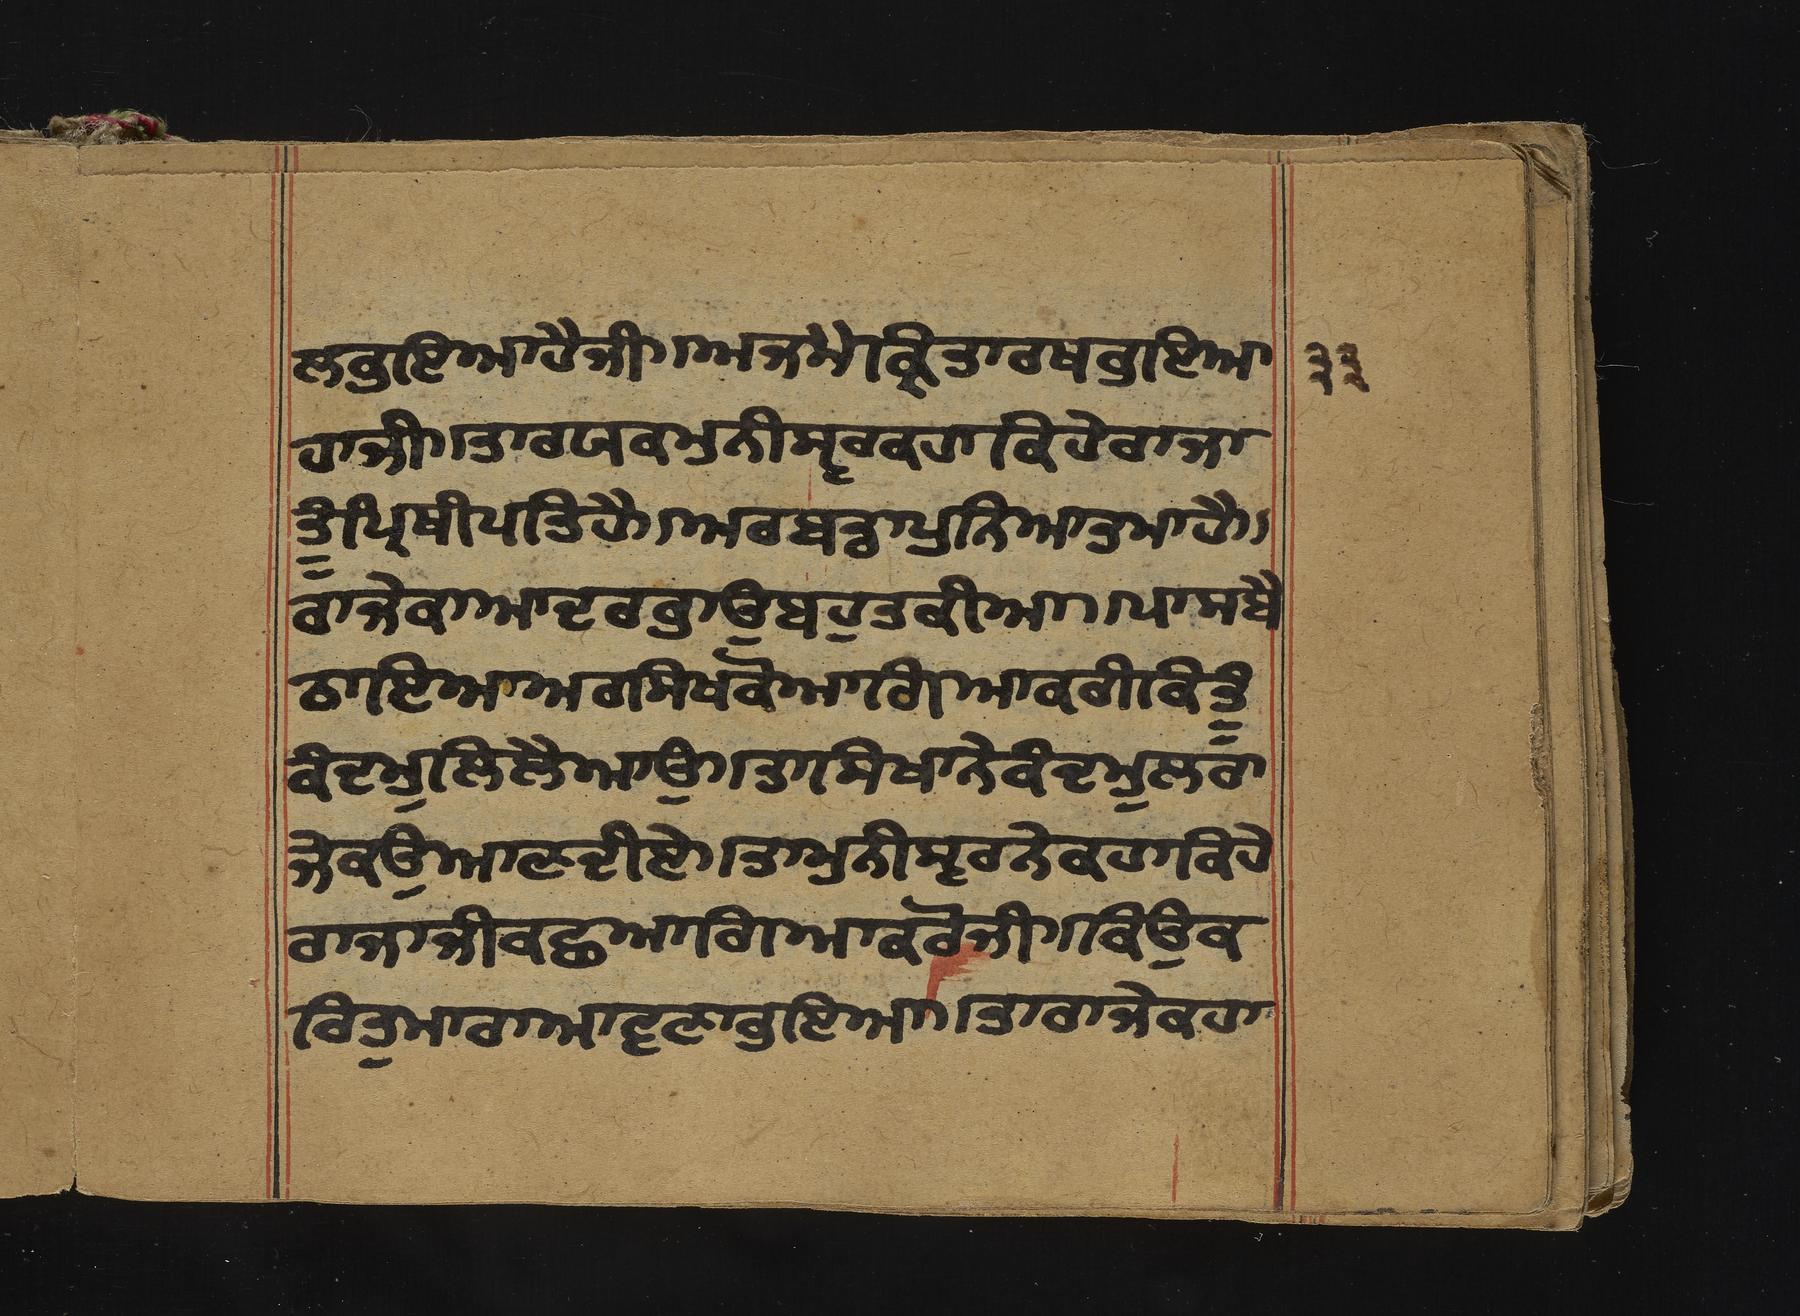 ਲਕੁਇਆਹੈਜੀ।ਅਜਮੈਕ੍ਰਿਤਾਰਥਕੁਇਆ ੩੩
ਹਾਜੀ।ਤਾਰਯਕਮੁਨੀਸ੍ਵਰਕਹਾਕਿਹੇਰਾਜਾ
ਤੂੰਪ੍ਰਿਥੀਪਤਿਹੈ।ਅਰਬਡਾਪੁਨਿਆਤਮਾਹੈ।
ਰਾਜੇਕਾਆਦਰਕੁਾਉਬਹੁਤਕੀਆ।ਪਾਸਬੈ
ਠਾਇਆਅਰਸਿਖਕੋਆਗਿਆਕਰੀਕਿਤੂੰ
ਕੰਦਮੁਲਿਲੈਆਉ।ਤਾਸਿਖਾਨੇਕੰਦਮੁਲਰਾ
ਜੇਕਉਆਣਦੀਏ।ਤਾਮੁਨੀਸ੍ਵਰਨੇਕਹਾਕਿਹੇ
ਰਾਜਾਜੀਕਛੁਆਗਿਆਕਰੋਜੀ।ਕਿਉਕ
ਰਿਤੁਮਾਰਾਆਵਣਾਕੁਇਆ।ਤਾਰਾਜੇਕਹਾ